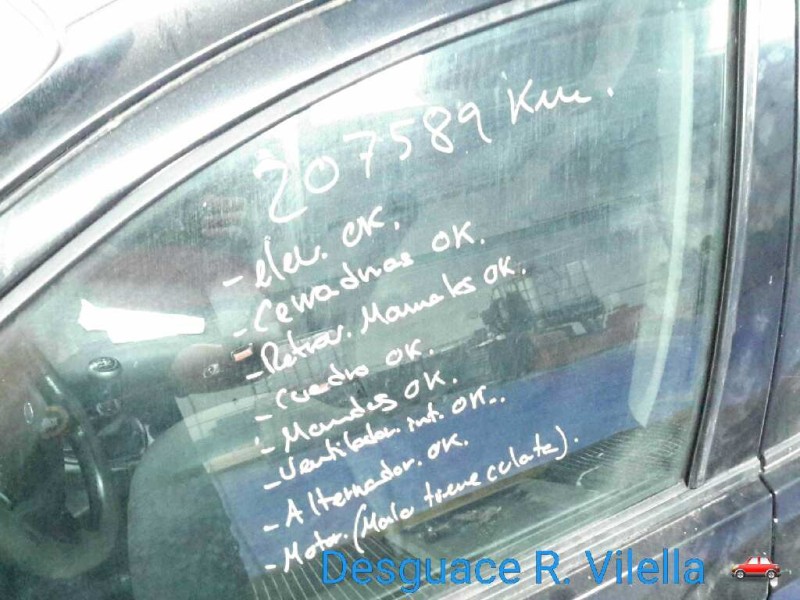 207589 Km.
- elev. OK.
- Cerraduras OK.
- Retrov. Manuales OK.
- Cuadro OK.
- Mandos OK.
- Ventilador int. OK..
- Alternador. OK.
- Motor. (Malo tiene culata).
Desguace R. Vilella